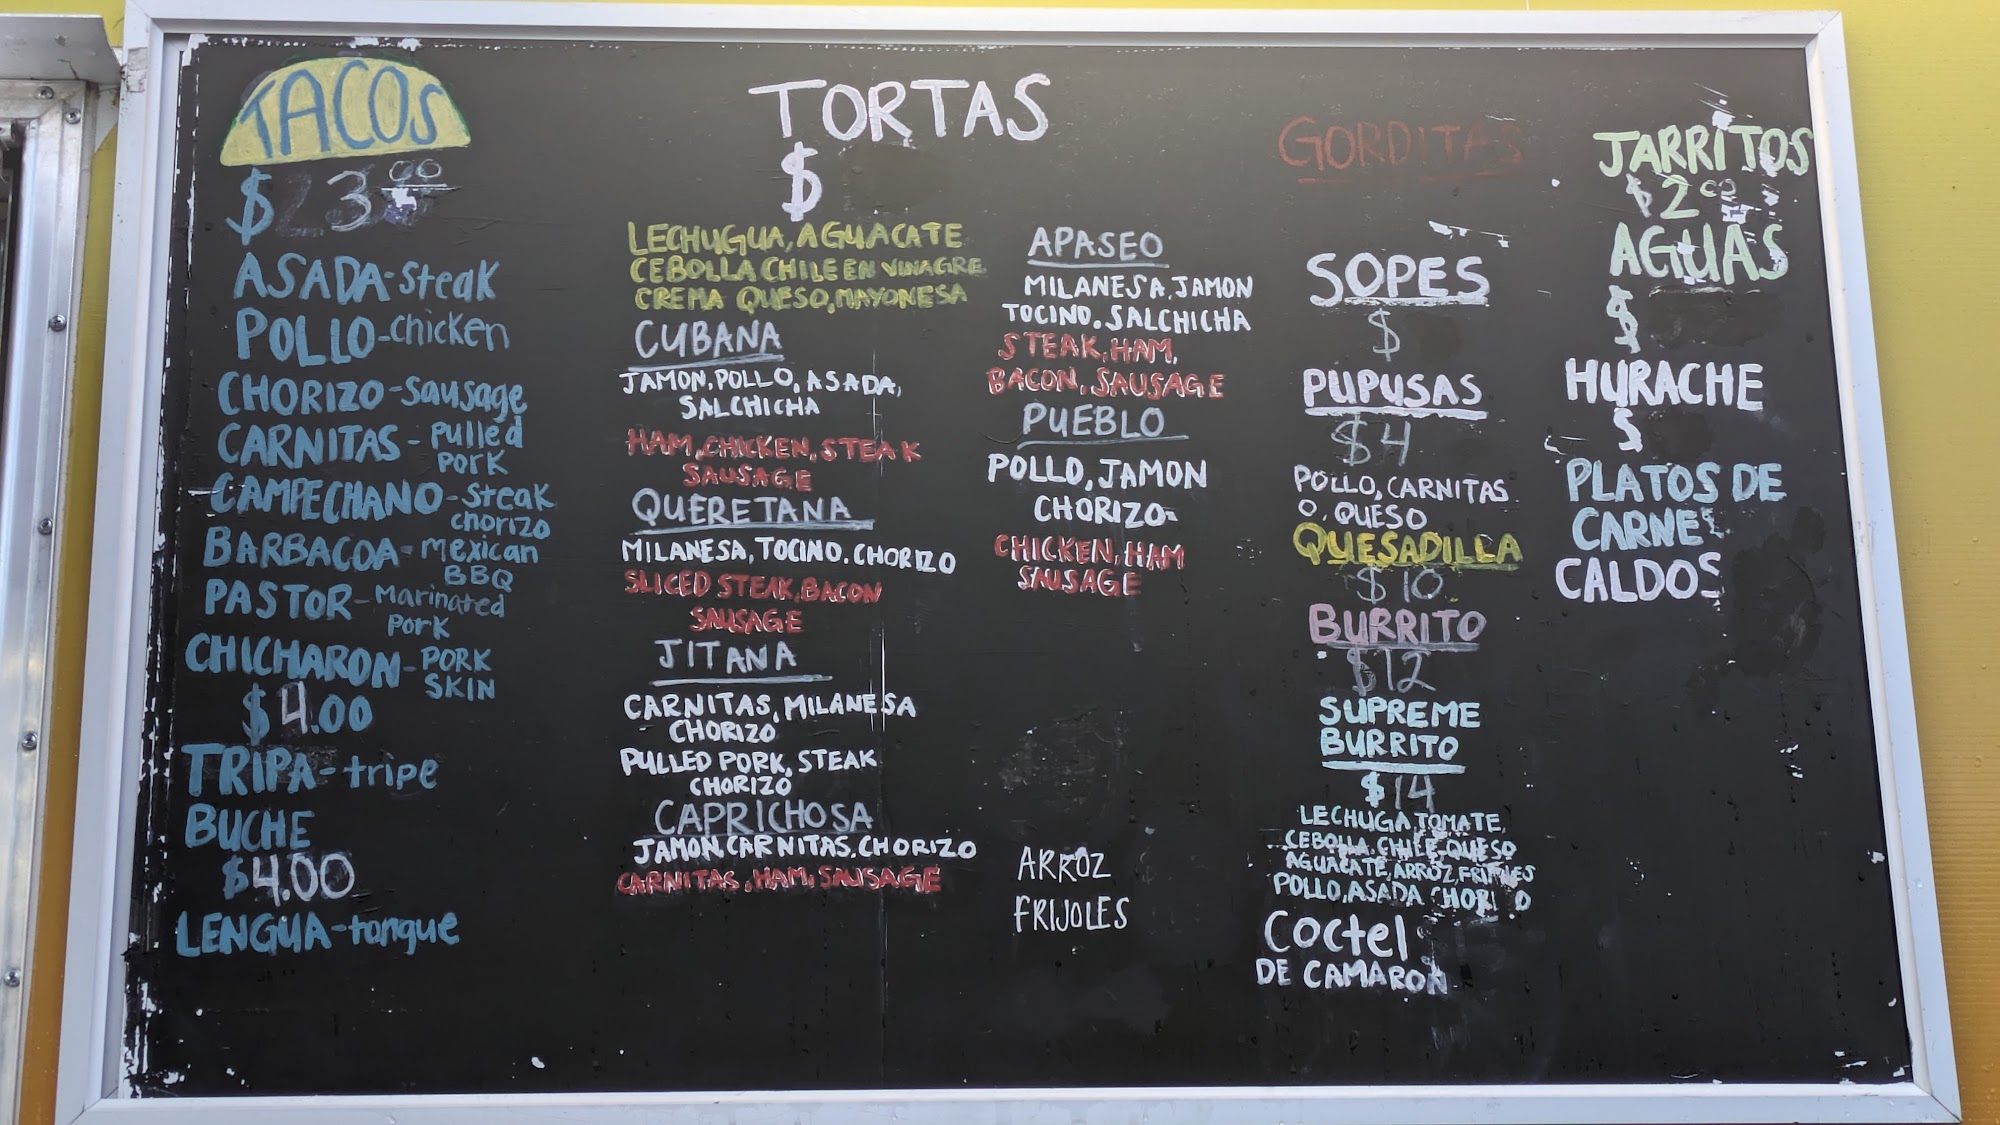 TACOS
$ 3.00
ASADA-Steak
POLLO-chicken
CHORIZO-Sausage
CARNITAS-Pulled
Pork
CAMPECHANO-Steak
chorizo
BARBACOA-Mexican
BBQ
PASTOR-Marinated
Pork
CHICHARON-PORK
SKIN
$4.00
TRIPA-tripe
BUCHE
$4.00
LENGUA-tongue
TORTAS
$
LECHUGUA, AGUACATE
CEBOLLA CHILE EN VINAGRE
CREMA QUESO, MAYONESA
CUBANA
JAMON, POLLO, ASADA,
SALCHICHA
HAM, CHICKEN, STEAK
SAUSAGE
QUERETANA
MILANESA, TOCINO. CHORIZO
SLICED STEAK, BACON
SAUSAGE
JITANA
CARNITAS, MILANESA
CHORIZO
PULLED PORK, STEAK
CHORIZO
CAPRICHOSA
JAMON, CARNITAS, CHORIZO
CARNITAS, HAM, SAUSAGE
APASEO
MILANESA, JAMON
TOCINO. SALCHICHA
STEAK, HAM,
BACON, SAUSAGE
PUEBLO
POLLO, JAMON
CHORIZO
CHICKEN, HAM
SAUSAGE
ARROZ
FRIJOLES
GORDITAS
SOPES
$
PUPUSAS
$4
POLLO, CARNITAS
O, QUESO
QUESADILLA
$10
BURRITO
$12
SUPREME
BURRITO
$14
LECHUGA TOMATE,
CEBOLLA, CHILE, QUESO
AGUACATE, ARROZ, FRIJOLES
POLLO, ASADA CHORIZO
Coctel
DE CAMARON
JARRITOS
$2.00
AGUAS
$
HURACHE
$
PLATOS DE
CARNE
CALDOS